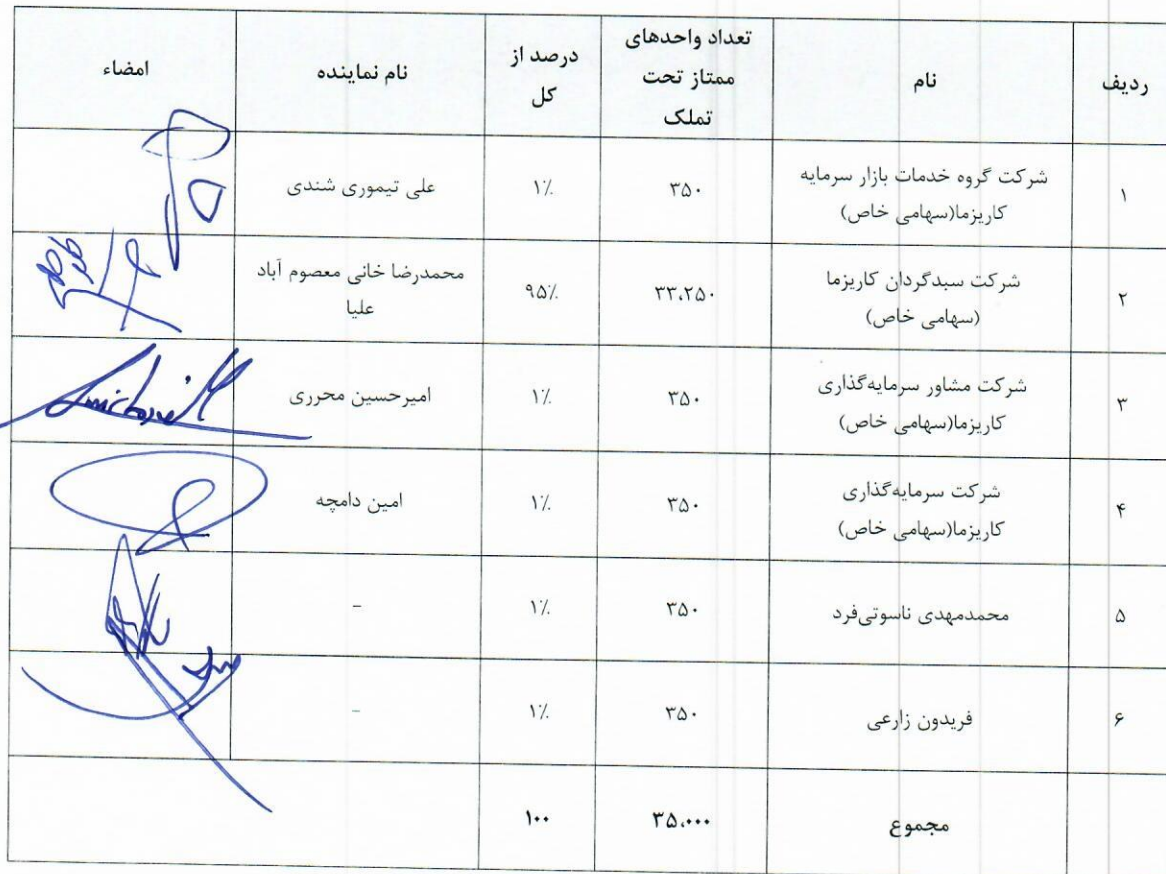 ردیف
نام
تعداد واحدهای
ممتاز تحت
تملک
درصد از
کل
نام نماینده
امضاء
۱
شرکت گروه خدمات بازار سرمایه
کاریزما(سهامی خاص)
۳۵۰
۱٪
علی تیموری شندی
۲
شرکت سبدگردان کاریزما
(سهامی خاص)
۳۳،۲۵۰
۹۵٪
محمدرضا خانی معصوم آباد
علیا
۳
شرکت مشاور سرمایه‌گذاری
کاریزما(سهامی خاص)
۳۵۰
۱٪
امیرحسین محرری
۴
شرکت سرمایه‌گذاری
کاریزما(سهامی خاص)
۳۵۰
۱٪
امین دامچه
۵
محمدمهدی ناسوتی‌فرد
۳۵۰
۱٪
-
۶
فریدون زارعی
۳۵۰
۱٪
-
مجموع
۳۵،۰۰۰
۱۰۰